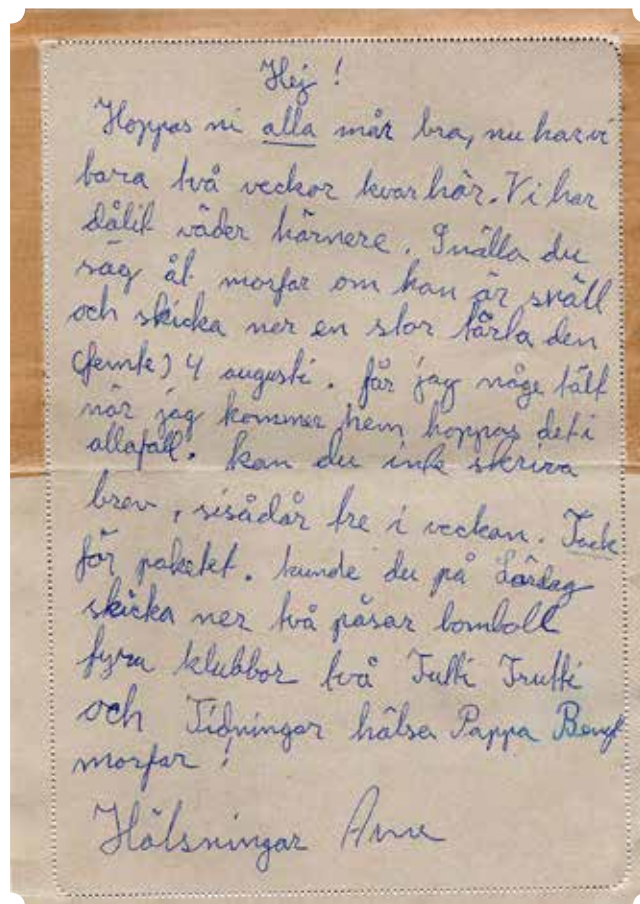 Hej !
Hoppas ni alla mår bra, nu har vi
bara två veckor kvar här. Vi har
dålit väder härnere. Snälla du
säg åt morfar om han är snäll
och skicka ner en stor tårta den
(femte) 4 augusti. får jag någe tält
när jag kommer hem hoppas det i
allafall. kan du inte skriva
brev, sisådär tre i veckan. Tack
för paketet. kunde du på Lördag
skicka ner två påsar bomboll
fyra klubbor två Tutti Frutti
och Tidningar hälsa Pappa Bengt
morfar !
Hälsningar Arne